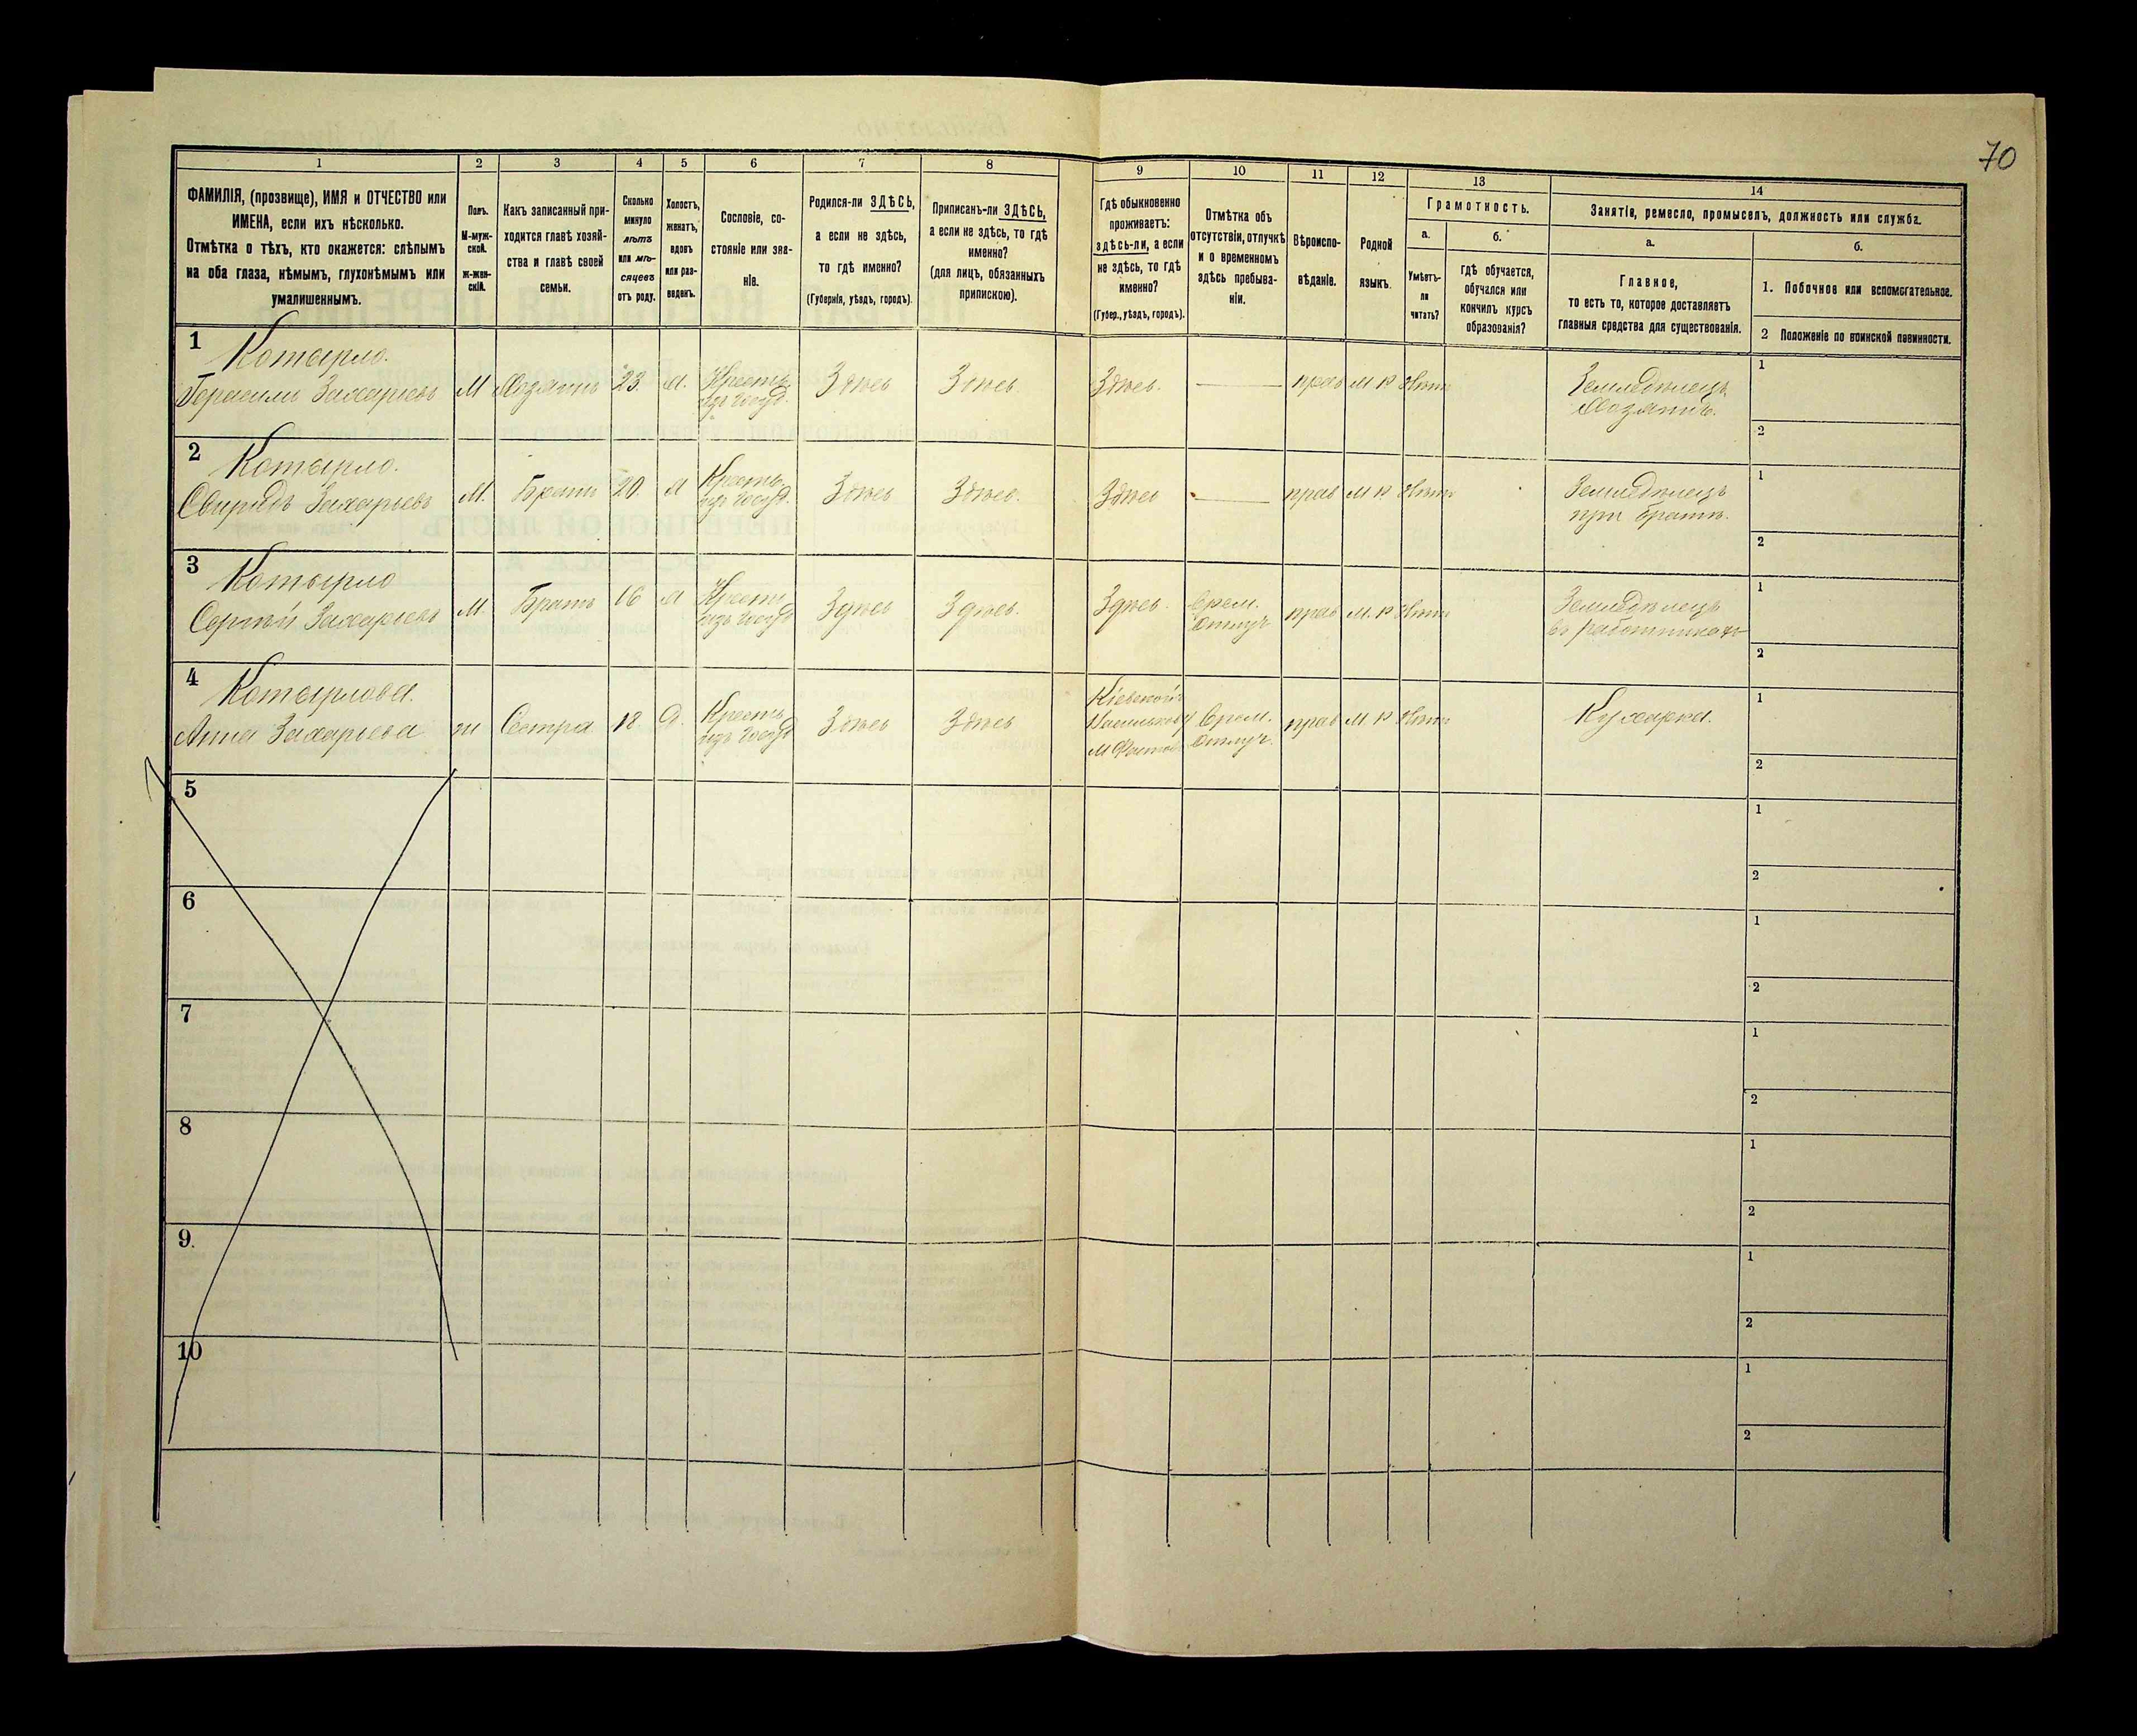 70
1 2 3 4 5 6 7 8 9 10 11 12 13 14
ФАМИЛІЯ, (прозвище), ИМЯ и ОТЧЕСТВО или
ИМЕНА, если ихъ нѣсколько.
Отмѣтка о тѣхъ, кто окажется: слѣпымъ
на оба глаза, нѣмымъ, глухонѣмымъ или
умалишеннымъ.
Полъ.
М-муж-
ской.
ж-жен-
скій.
Какъ записанный при-
ходится главѣ хозяй-
ства и главѣ своей
семьи.
Сколько
минуло
лѣтъ
или мѣ-
сяцевъ
отъ роду.
Холостъ,
женатъ,
вдовъ
или раз-
веденъ.
Сословіе, со-
стояніе или зва-
ніе.
Родился-ли ЗДѢСЬ,
а если не здѣсь,
то гдѣ именно?
(Губернія, уѣздъ, городъ).
Приписанъ-ли ЗДѢСЬ,
а если не здѣсь, то гдѣ
именно?
(для лицъ, обязанныхъ
припискою).
Гдѣ обыкновенно
проживаетъ:
здѣсь-ли, а если
не здѣсь, то гдѣ
именно?
(Губер., уѣздъ, городъ).
Отмѣтка объ
отсутствіи, отлучкѣ
и о временномъ
здѣсь пребыва-
ніи.
Вѣроиспо-
вѣданіе.
Родной
языкъ.
Грамотность.
а.
Умѣетъ-
ли
читать?
б.
Гдѣ обучается,
обучался или
кончилъ курсъ
образованія?
Занятіе, ремесло, промыселъ, должность или служба.
а.
Главное,
то есть то, которое доставляетъ
главныя средства для существованія.
б.
1. Побочное или вспомогательное.
2 Положеніе по воинской повинности.
1
Котырло.
Герасимъ Захарьевъ М Хозяинъ 23 Х. Крестьян. изъ госуд. Здѣсь Здѣсь Здѣсь. — прав М Р Нѣтъ
Земледѣлецъ
Хозяинъ.
1
2
2
Котырло.
Свиридъ Захарьевъ М. Братъ 20 Х Крестьян. изъ госуд. Здѣсь Здѣсь. Здѣсь — прав М Р Нѣтъ
Земледѣлецъ
при братѣ.
1
2
3
Котырло
Сергѣй Захарьевъ М. Братъ 16 Х Крестьян. изъ госуд Здѣсь Здѣсь. Здѣсь. Врем. Отлуч. прав М. Р Нѣтъ
Земледѣлецъ
въ работникахъ
1
2
4
Котырлова.
Анна Захарьева ж Сестра 18 Д. Крестьян. изъ госуд Здѣсь Здѣсь
Кіевской
Васильков у
М Фастов
Врем.
Отлуч.
прав М Р Нѣтъ
Кухарка.
1
2
5
1
2
6
1
2
7
1
2
8
1
2
9.
1
2
10
1
2